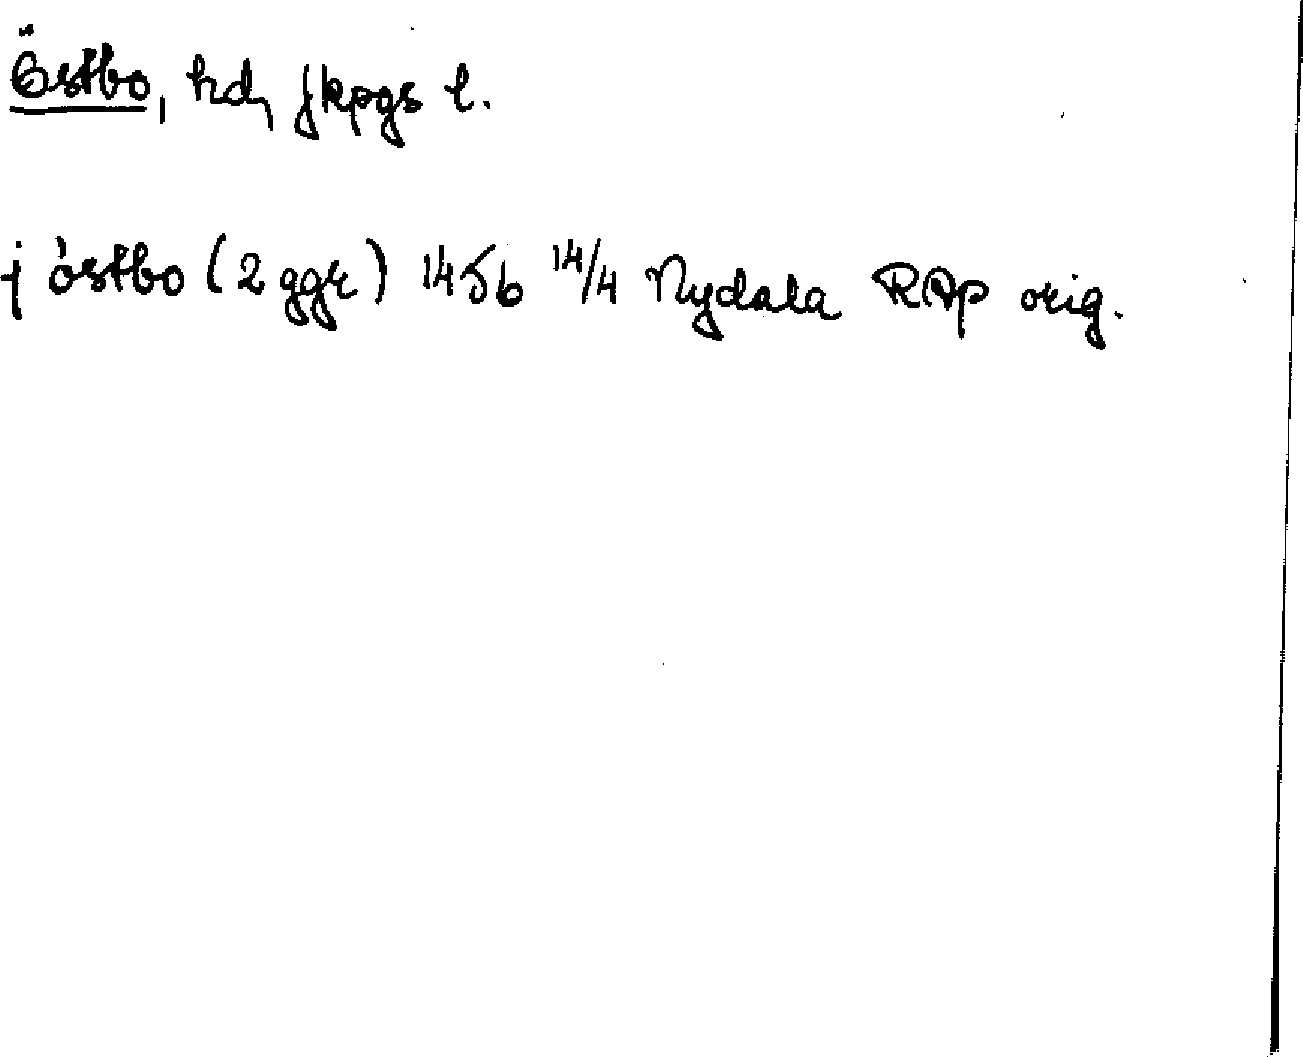 Östbo, hd, Jkpgs l.
j óstbo (2 ggr) 1456 14/4 Nydala RAp orig.